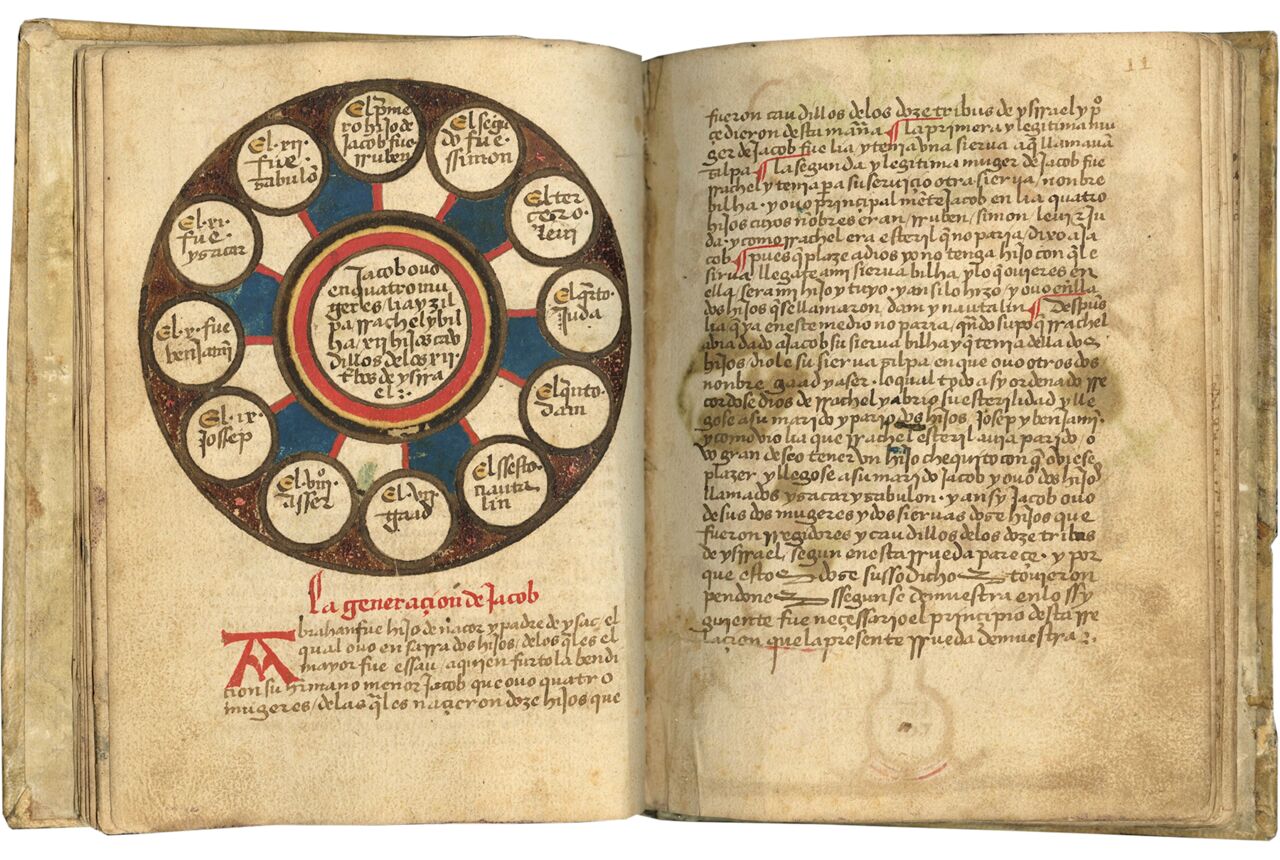 El pͫme
ro hijo de
Jacob fue
rruben
El segū
do fue
ssimon
El ter
çero.
leui
El q̄rto.
Juda
El q̄nto.
dam
El ssesto.
nauta
lin
El .vii.
gaad
El .viiiº.
asser
El .ix.
Jossep
El .x. fue
benjamī
El .xi.
fue.
ysacar
El .xii.
fue.
sabulō
Jacob ouo
en quatro mu
geres / lia y zil
pa rrachel y bil
ha .xii hijos cav
dillos de los .xii.
t̄bos de ysrra
el :.
La generaçion de Jacob
Abrahan fue hijo de nacor y padre de ysac, el
qual ouo en sarra dos hijos, de los q̄les el
mayor fue essau, a quien furto la bendi
çion su hirmano menor Jacob que ouo quatro
mugeres / de las q̄les naçieron doze hijos que
11
fueron caudillos de los doze tribus de ysrrael y p̊
çedieron desta man̄a ¶ la primera y legitima mu
ger de Jacob fue lia y tenia vna sierva a q̄ llamauā
gilpa ¶ la segunda y legitima muger de Jacob fue
rrachel y tenia pa su seruiçio otra sierva, nonbre
bilha . y ouo prinçipal mete Jacob en lia quatro
hijos cuyos nōbres eran, rruben / simon / leui z Ju
da . y como rrachel era esteril q̄ no paria, dixo a Ja
cob ¶ pues q̄ plaze a dios yo no tenga hijo con q̄ le
sirva, llegate a mi sierva bilha y lo q̄ ouieres en
ella, sera mi hijo y tuyo . y an si lo hizo / y ouo en ella
dos hijos q̄ se llamaron, dam y nautalin ¶ Despues
lia q̄ ya en este medio no paria, q̄ndo supo q̄ rrachel
abia dado a Jacob su sierva bilha y q̄ tenia della dos
hijos / diole su sierva gilpa en que ouo otros dos
nonbre gaad y aser . lo qual todo asy ordenado rre
cordose dios de rrachel y abrio su esterilidad y lle
gose a su marido y pario dos hijos, Josep y benjamī
y como vio lia que rrachel esteril auia parido / o
vo gran deseo tener vn hijo chequito con q̄ obiese
plazer y llegose a su marido Jacob y ouo dos hijos
llamados ysacar y sabulon . y ansy Jacob ouo
de sus dos mugeres y dos siervas doze hijos que
fueron rregidores y caudillos de los doze tribus
de ysrrael, segun en esta rrueda pareçe . y por
que estos doze sussodichos touieron
pendones ssegun se demuestra en lo ssy
guiente fue neçessario el prinçipio desta rre
laçion que la presente rrueda demuestra :.